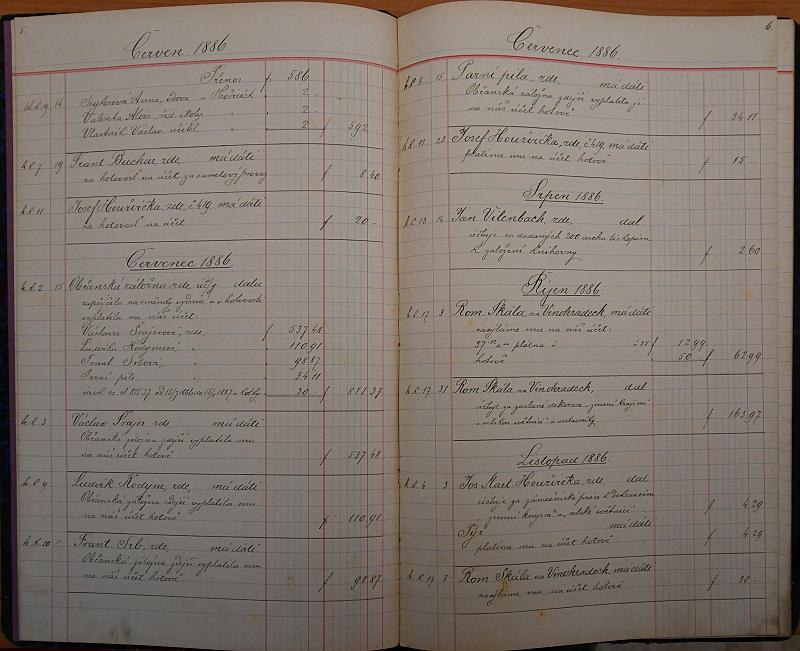 5.
Červen 1886
Přenos f 586 -
hl. K. 19 14 Seykorová Anna, vdova v Hořicích 2 -
Valenta Alois, řid. školy 2 -
Vlastník Václav, učitel 2 - f 592 -
h. K. 7 19 Frant. Buchar, zde, má dáti
za hotovost na účet za sametový provaz f 8.40
h. K. 11 Josef Houžvička, zde, č. 419, má dáti
za hotovost na účet f 20 -
Červenec 1886
h. K. 2 15 Občanská záložna zde, dala
zapůjčila na směnky v hotovosti
vyplatila na náš účet:
Václavu Šrajerovi, zde, f 537.48
Ludvíku Kodymovi, " 110.91
Frant. Srbovi, " 98.87
Parní pile " 34.11
30 - f 811.37
h. K. 3 Václav Šrajer zde, má dáti
Občanská záložna zdejší vyplatila mu
na náš účet hotově f 537.48
h. K. 9 Ludvík Kodym, zde, má dáti
Občanská záložna zdejší vyplatila mu
na náš účet hotově f 110.91
h. K. 10 Frant. Srb, zde, má dáti
Občanská záložna zdejší vyplatila mu
na náš účet hotově f 98.87
6.
Červenec 1886.
h. K. 8 15 Parní pila, zde, má dáti
Občanská záložna zdejší vyplatila jí
na náš účet hotově f 34.11
h. K. 11 23 Josef Houžvička, zde č. 419, má dáti
platíme mu na účet hotově f 15 -
Srpen 1886.
h. K. 13 14 Jan Vilenbach, zde, dal
účtuje za dodaných 200 archů tiskopisu
k založení knihovny f 2.60
Říjen 1886
h. K. 17 3 Rom. Skála na Vinohradech, má dáti
zasýláme mu na náš účet:
37 m plátna á 35 f 12.99
hotově 50 - f 62.99
h. K. 17 31 Rom Skála na Vinohradech, dal
účtuje za zaslané dekorace "zimní krajinu"
f 163.97
Listopad 1886.
h. K. 4 3 Jos. Karl Houžvička, zde, dal
účtuje za zámečnické práce k dekoracím
"zimní krajina" a "selské světnici" f 4.29
Týž má dáti
platíme mu na účet hotově f 4.29
h. K. 17 3 Rom Skála na Vinohradech má dáti
zasýláme mu na účet hotově f 30 -